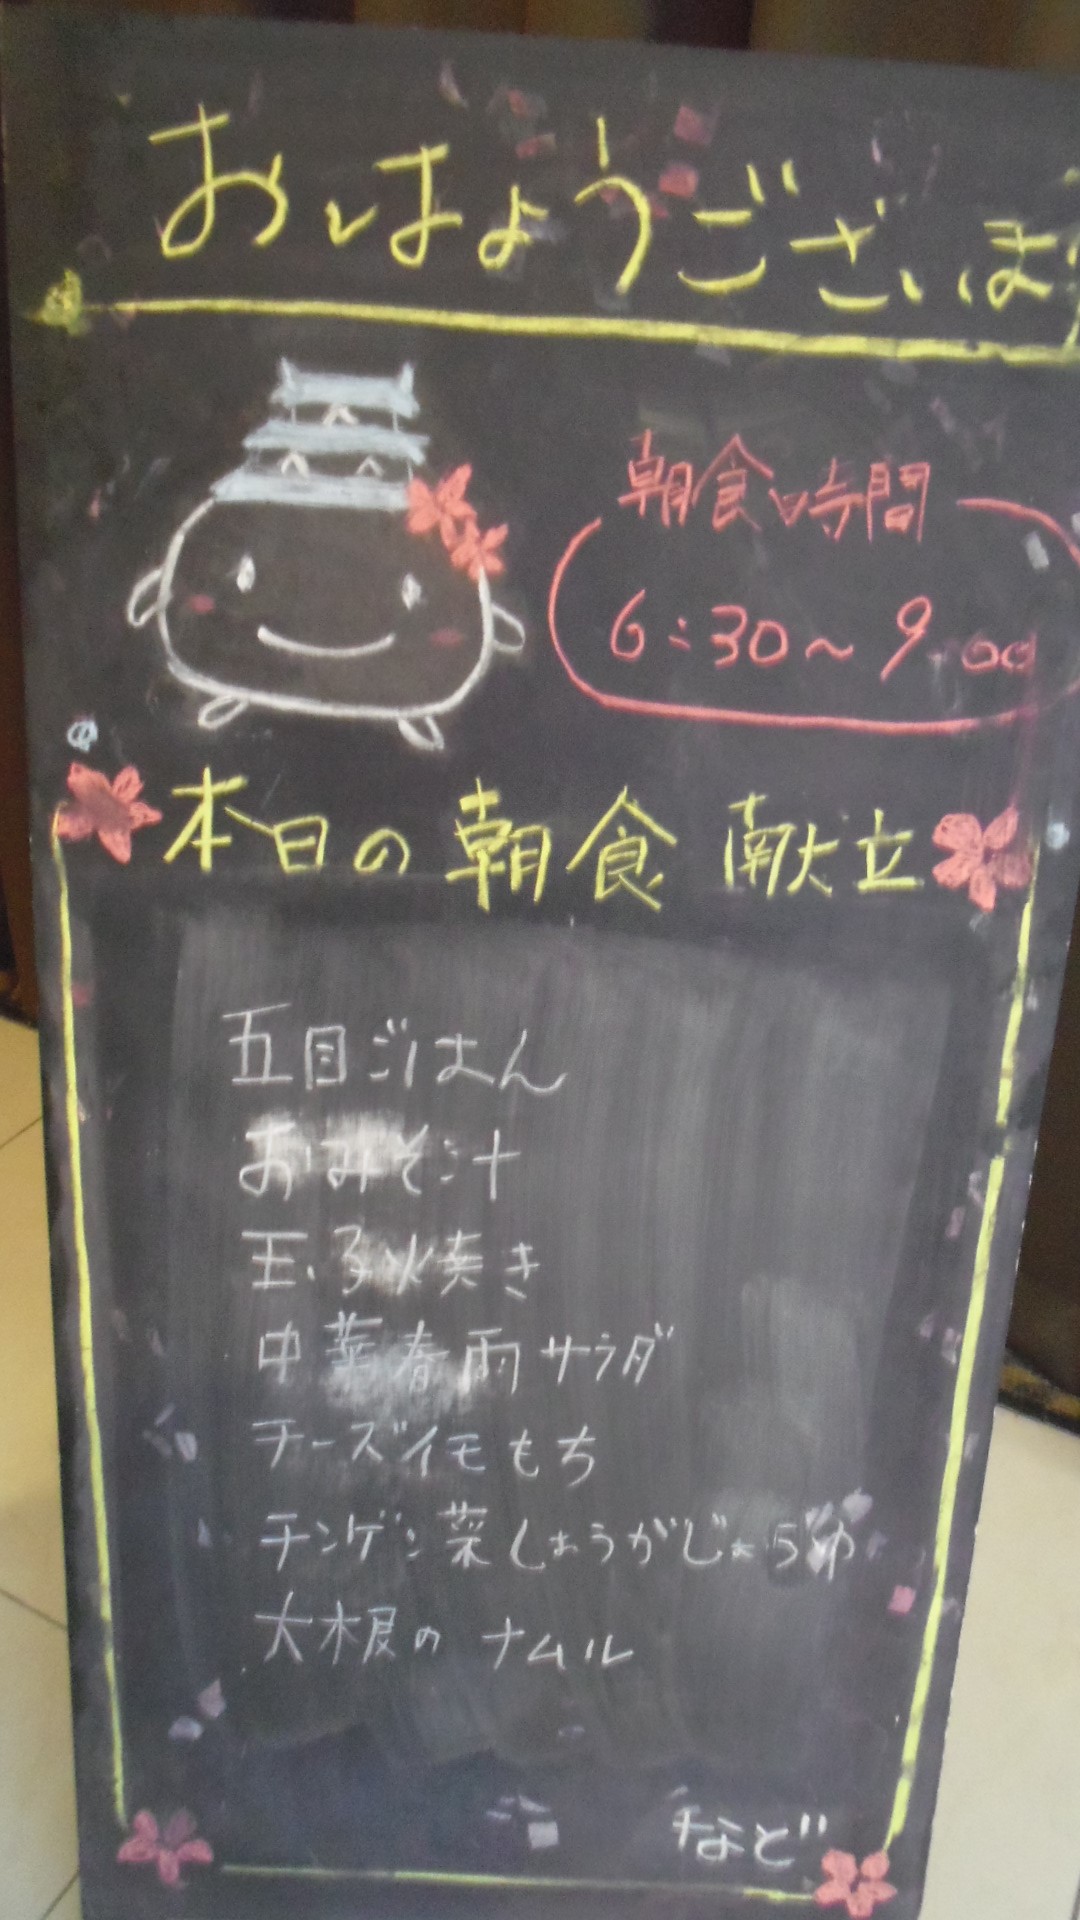 おはようございます
朝食時間
6:30～9:00
本日の朝食 献立
五目ごはん
おみそ汁
玉子焼き
中華春雨サラダ
チーズイモもち
チンゲン菜しょうがじょうゆ
大根のナムル
など